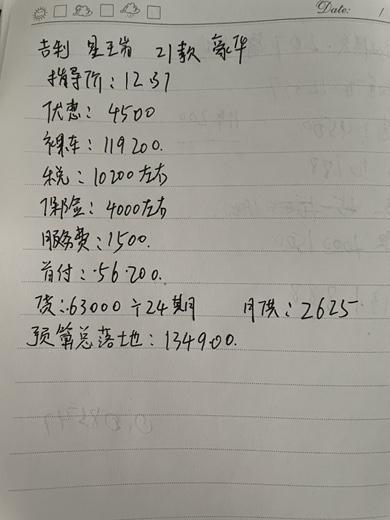 Date: 1
吉利 星王岩 21款 豪华
指导价：12.37
优惠：4500
裸车：119200.
税：10200左右
保险：4000左右
服务费：1500.
首付：56200.
贷：63000÷24期 月供：2625
预算总落地：134900.